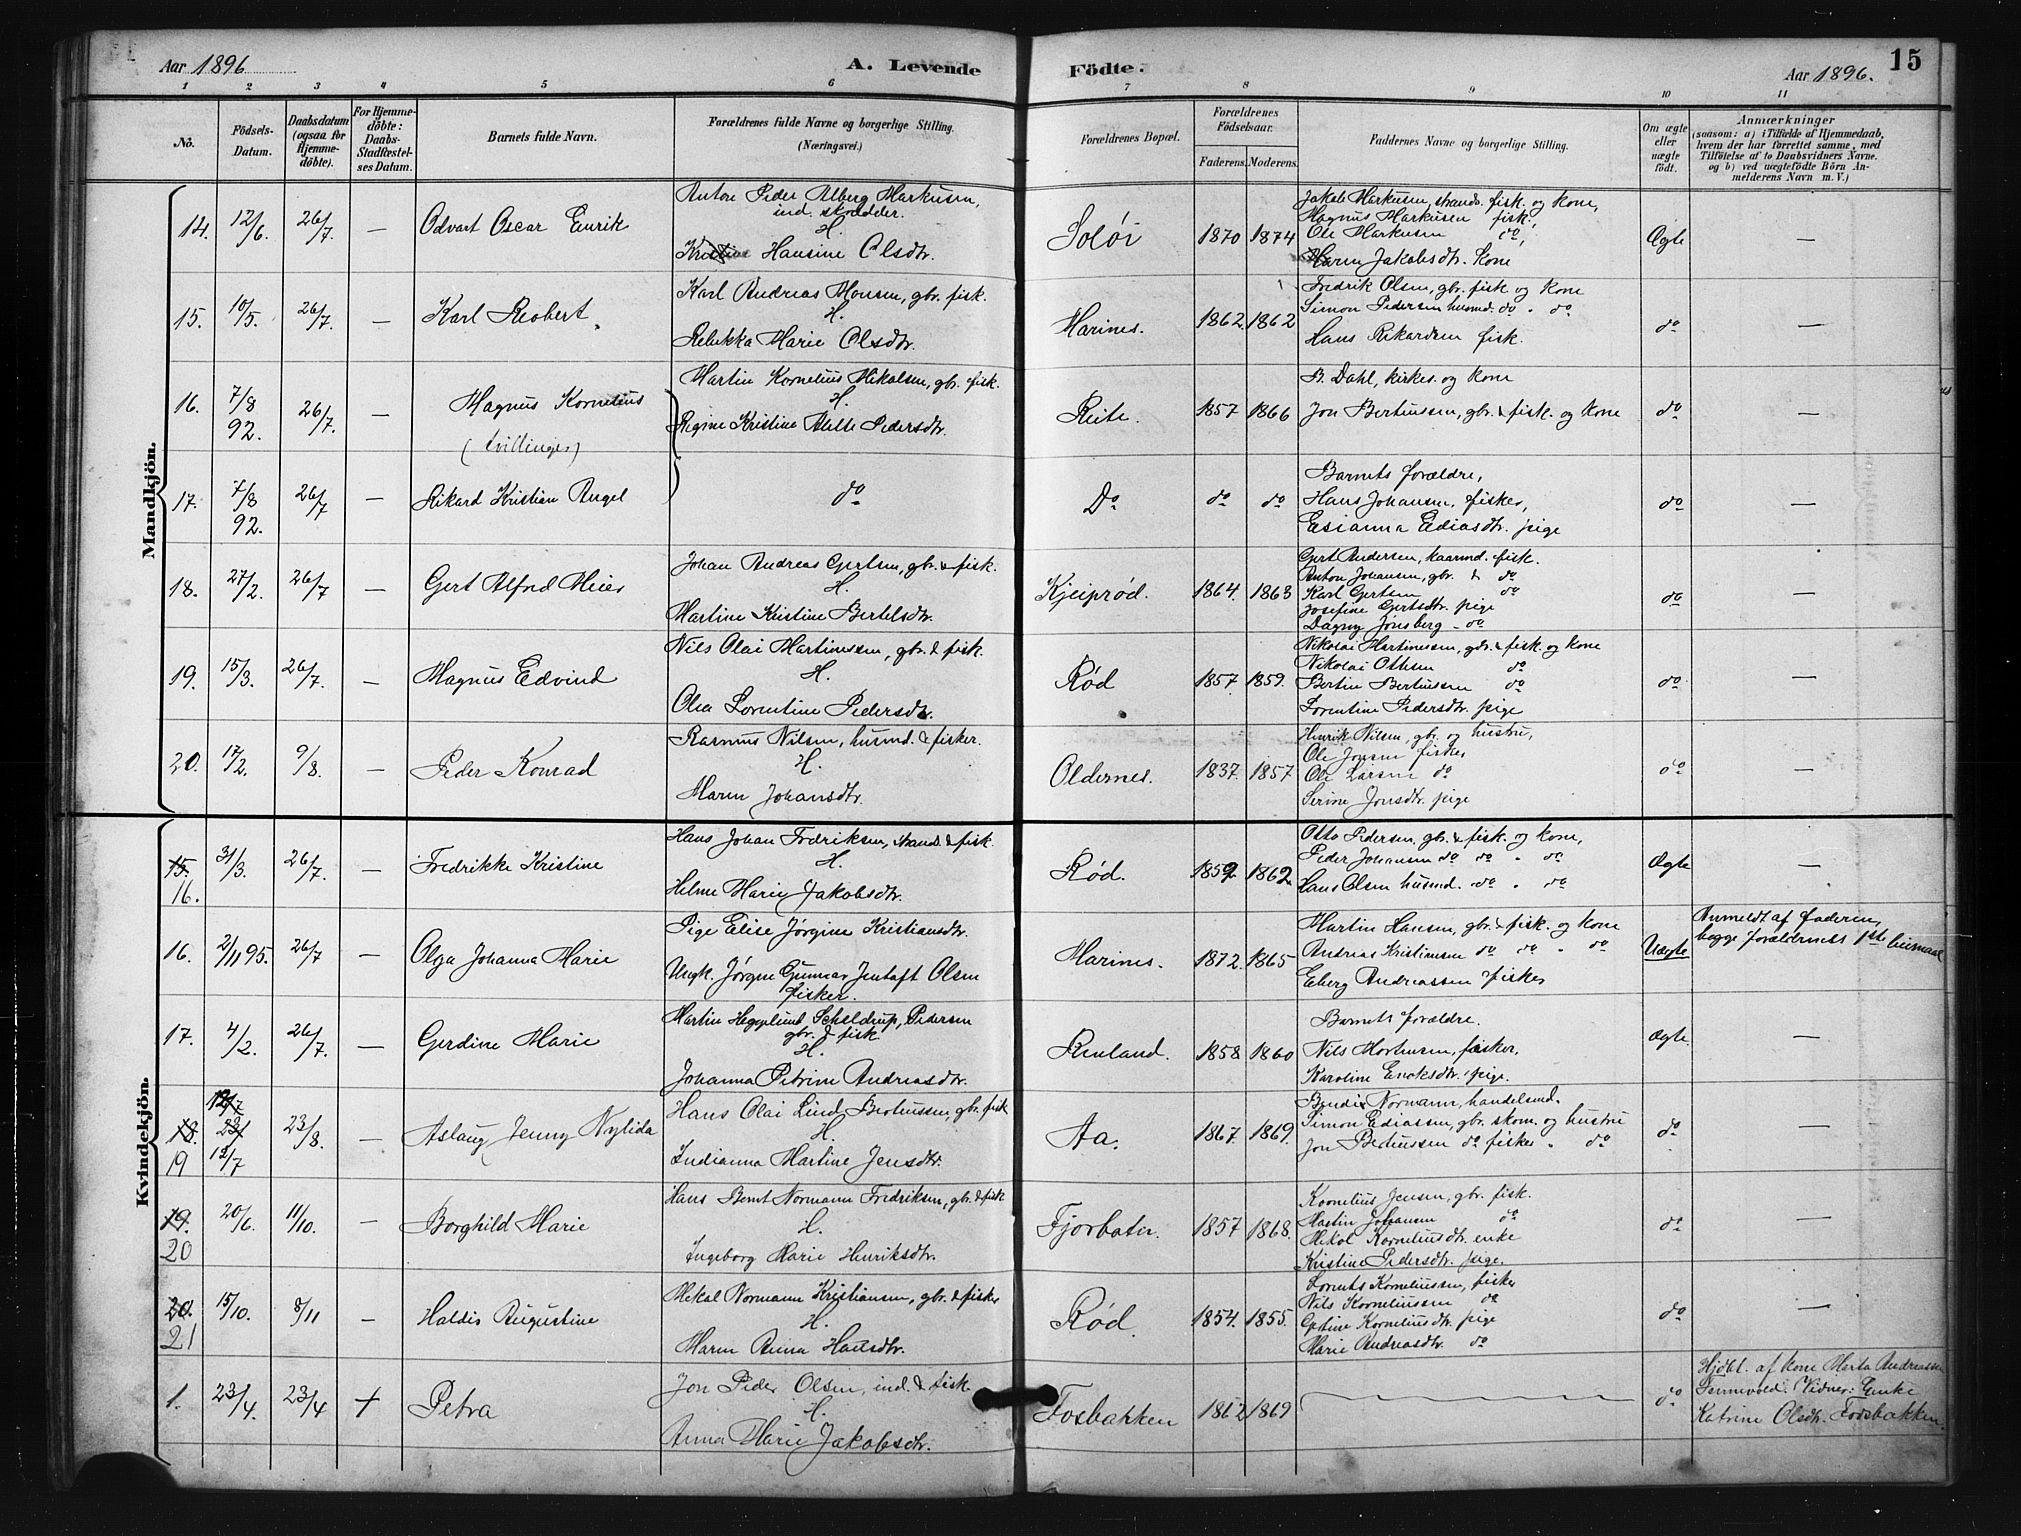 Aar 1896
A. Levende
Födte.
Aar 1896.
15
1 2 3 4 5 6 7 8 9 10 11
No.
Födsels-Datum.
Daabsdatum (ogsaa for Hjemme-döbte).
For Hjemme-döbte: Daabs-Stadfæstel-ses Datum.
Barnets fulde Navn.
Forældrenes fulde Navne og borgerlige Stilling.
(Næringsvei.)
Forældrenes Bopæl.
Forældrenes Födselsaar.
Faderens. Moderens.
Faddernes Navne og borgerlige Stilling.
Om ægte eller uægte födt.
Anmærkninger
(saasom: a) i Tilfælde af Hjemmedaab,
hvem der har forrettet samme, med
Tilföielse af to Daabsvidners Navne.
og b) ved uægtefödte Börn An-
melderens Navn m. V.)
Mandkjön.
14. 12/6. 26/7. — Odvart Oscar Enrik
Anton Peder Alberg Markusen,
ind. skrædder.
H.
Hansine Olsdtr.
Soløi 1870 1874
Jakob Markusen, strands. fisk. og kone,
Magnus Markusen fisk.
Ole Markusen do,
Maren Jakobsdtr. kone
Ægte —
15. 10/5. 26/7. — Karl Robert
Karl Andreas Hansen, gbr. fisk.
H.
Rebekka Marie Olsdtr.
Marines. 1862. 1862
Fredrik Olsen, gbr. fisk og kone
Simon Pedersen husmd. do " do
Hans Rikardsen fisk.
do —
16. 7/8 92. 26/7. — Magnus Kornelius
(tvillinger)
Martin Kornelius Mikalsen, gbr. fisk.
H.
Regine Kristine Pedersdtr.
Reite. 1857. 1866
B. Dahl, kirkes. og kone
Jon Bertinssen, gbr. & fisk. og kone
do —
17. 7/8 92. 26/7 — Rikard Kristian Angel
do
Do do do
Barnets forældre,
Hans Johansen, fisker,
Esianna Ediasdtr. pige
do —
18. 27/2. 26/7 — Gert Alfred Meier
Johan Andreas Gertsen, gbr. & fisk.
H.
Martine Kristine Bertelsdtr.
Kjeiprød. 1864. 1863
Gert Andersen, kaarmd. fisk.
Anton Johansen, gbr. & do
Karl Gertsen do
Josefine Gertsdtr. pige
Dagny Jonsberg - do
do —
19. 15/3. 26/7. — Magnus Edvind
Nils Olai Martinessen, gbr. & fisk.
H.
Olea Lorentine Pedersdtr.
Rød 1857. 1859.
Nikolai Martinessen, gbr. & fisk. og kone
Nikolai Ottesen do
Bertin Bertinssen do
Lorentine Pedersdtr. pige
do. —
20. 17/2. 9/8. — Peder Konrad
Rasmus Nilsen, husmd. & fisker.
H.
Maren Johansdtr.
Oldernes. 1837. 1857
Henrik Nilsen, gbr. og hustru,
Ole Jonsen fisker,
Ole Larsen do
Serine Jonsdtr. pige
do —
Kvindekjön.
15. 16. 31/3. 26/7. — Fredrikke Kristine
Hans Johan Fredriksen, strands. & fisk.
H.
Helene Marie Jakobsdtr.
Rød. 1859. 1862.
Otto Pedersen, gbr. & fisk. og kone,
Peder Johansen do do " do
Hans Olsen husmd. do " do
Ægte —
16. 2/11 95. 26/7 — Olga Johanna Marie
Pige Elise Jørgine Kristiansdtr.
Ungk. Jørgen Gunnar Jentoft Olsen
fisker.
Marines. 1872. 1865
Martin Hansen, gbr. & fisk. og kone
Andreas Kristiansen do do " do
Eberg Andreassen fisker
Uægte
Anmeldt af faderen,
begge forældrenes 1ste leiermaal
17. 4/2. 26/7. — Gerdine Marie
Martin Hegglund Scheldrup, Pedersen
gbr. & fisk
H.
Johanna Petrine Andreasdtr.
Renland. 1858. 1860
Barnets forældre.
Nils Mortensen, fisker,
Karoline Ericksdtr. pige.
Ægte. —
18. 19 12/7 23/8. — Aslaug Jenny Nylida
Hans Olai Lind Bertinssen, gbr. fisk
H.
Indianna Martine Jensdtr.
Aa. 1867. 1869.
Bendix Normann, handelsmd.
Simon Ediassen, gbr. skom. og hustru
Jon Bertinssen do fisker " do
do. —
19. 20 20/6. 11/10. — Borghild Marie
Hans Bernt Normann Fredriksen, gbr. & fisk
H.
Ingeborg Marie Henriksdtr.
Fjorbotn. 1857 1868.
Kornelius Jensen, gbr. fisk.
Martin Johansen do
Mekal Korneliusdtr. enke
Kristine Pedersdtr. pige.
do. —
20. 21 15/10. 8/11 — Haldis Augustine
Mekal Normann Kristiansen, gbr. & fisker
H.
Maren Anna Hansdtr.
Rød. 1854. 1855.
Lornts Korneliussen, fisker
Nils Korneliussen do
Gertine Korneliusdtr. pige
Marie Andreasdtr. do
do —
1. 23/4. 23/4 + Petra
Jon Peder Olsen, ind. & fisk.
H.
Anna Marie Jakobsdtr.
Fosbakken 1862 1869
do
Hjdbt. af kone Marta Andreassen
Tennvold. Vidner: Enke
Katrine Olsdtr. Fosbakken.